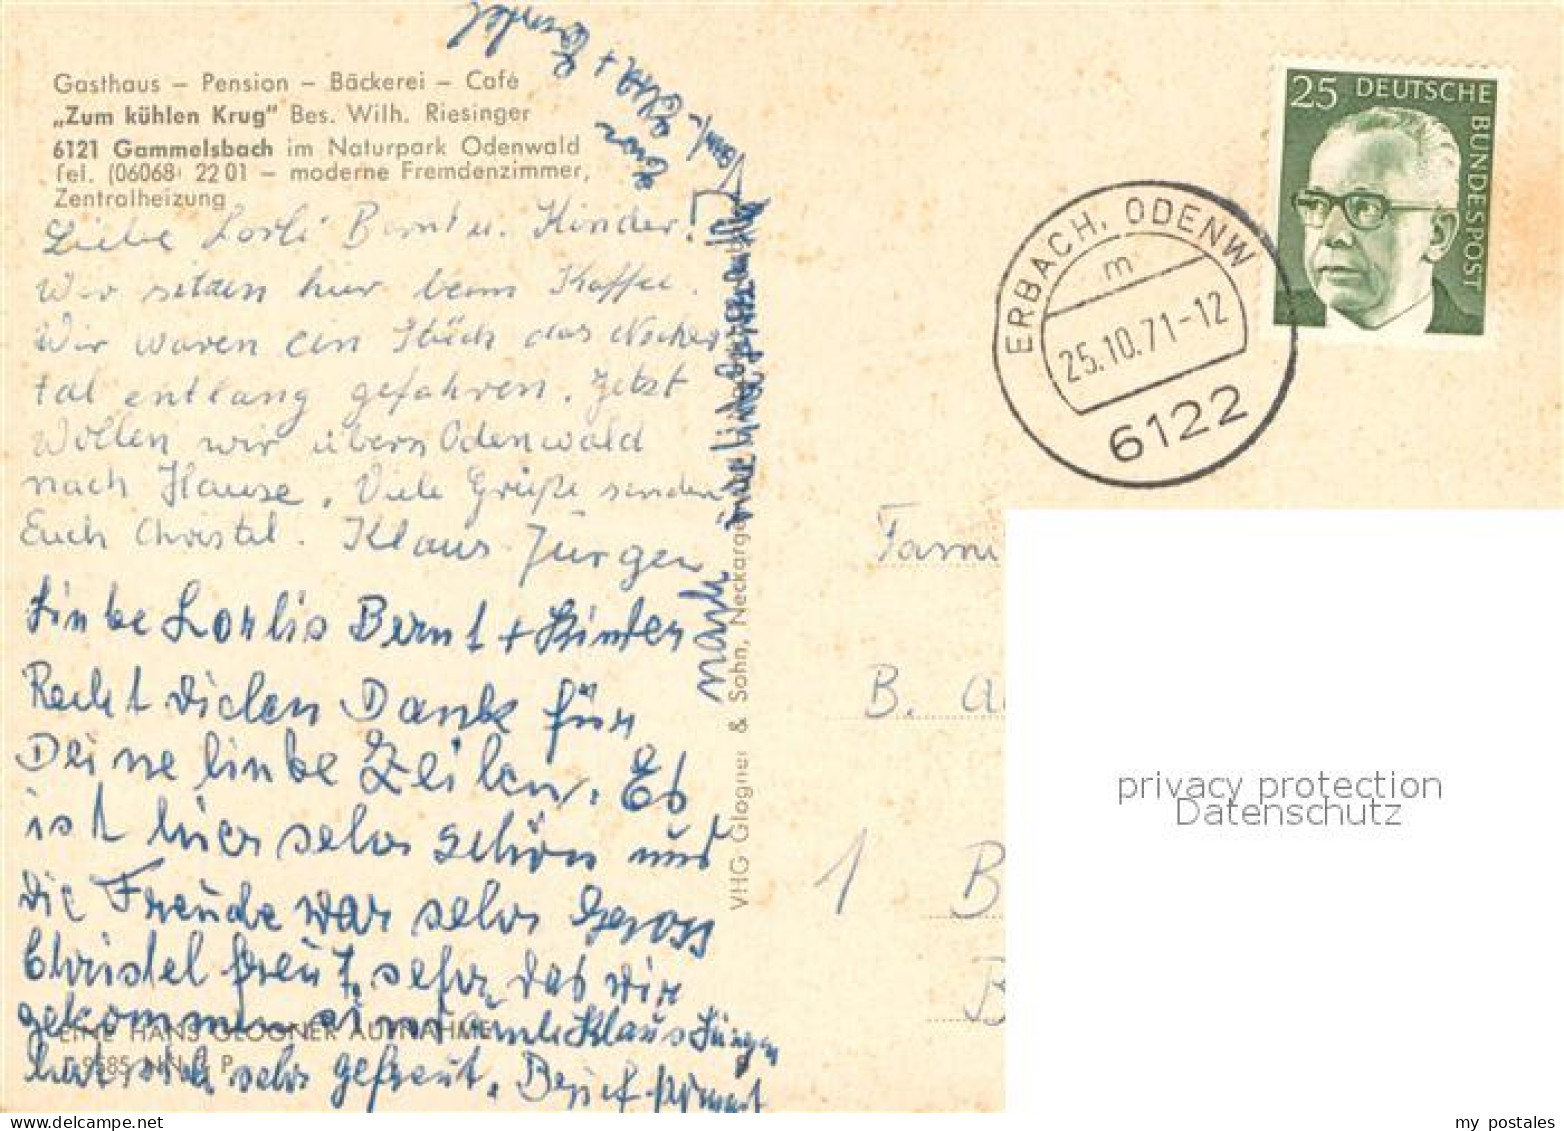 Gasthaus – Pension – Bäckerei – Café
„Zum kühlen Krug" Bes. Wilh. Riesinger
6121 Gammelsbach im Naturpark Odenwald
Tel. (06068) 22 01 – moderne Fremdenzimmer,
Zentralheizung
Liebe Lorli Bernt u. Kinder!
Wir sitzen hier beim Kaffee.
Wir waren ein Stück das Necker
tal entlang gefahren. Jetzt
Wollen wir übern Odenwald
nach Hause. Viele Grüße senden
Euch Christel. Klaus Jürgen
Liebe Lorlis Bernt + Kinder
Recht vielen Dank für
Deine liebe Zeilen. Es
ist hier sehr schön und
die Freude war sehr gross
Christel freut sehr das wir
gekommen sind und Klaus Jürgen
hat sich sehr gefreut. Brief
nach
EINE HANS GLOGNER AUFNAHME
VHG Glogner & Sohn, Neckarge
25 DEUTSCHE BUNDESPOST
ERBACH, ODENW
m
25.10.71-12
6122
Fami
B.
1 B
B
privacy protection
Datenschutz
my postales